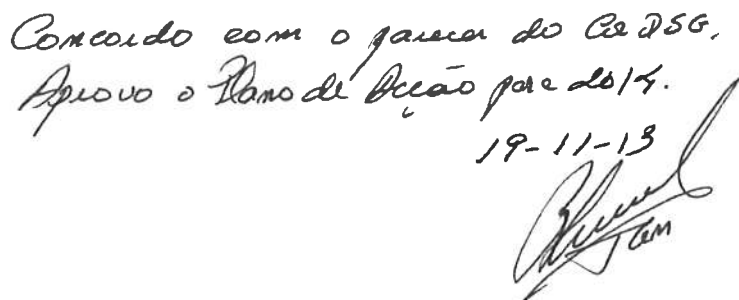 Concordo com o parecer do CeDSG.
Aprovo o Plano de Acção para 2014.
19-11-13